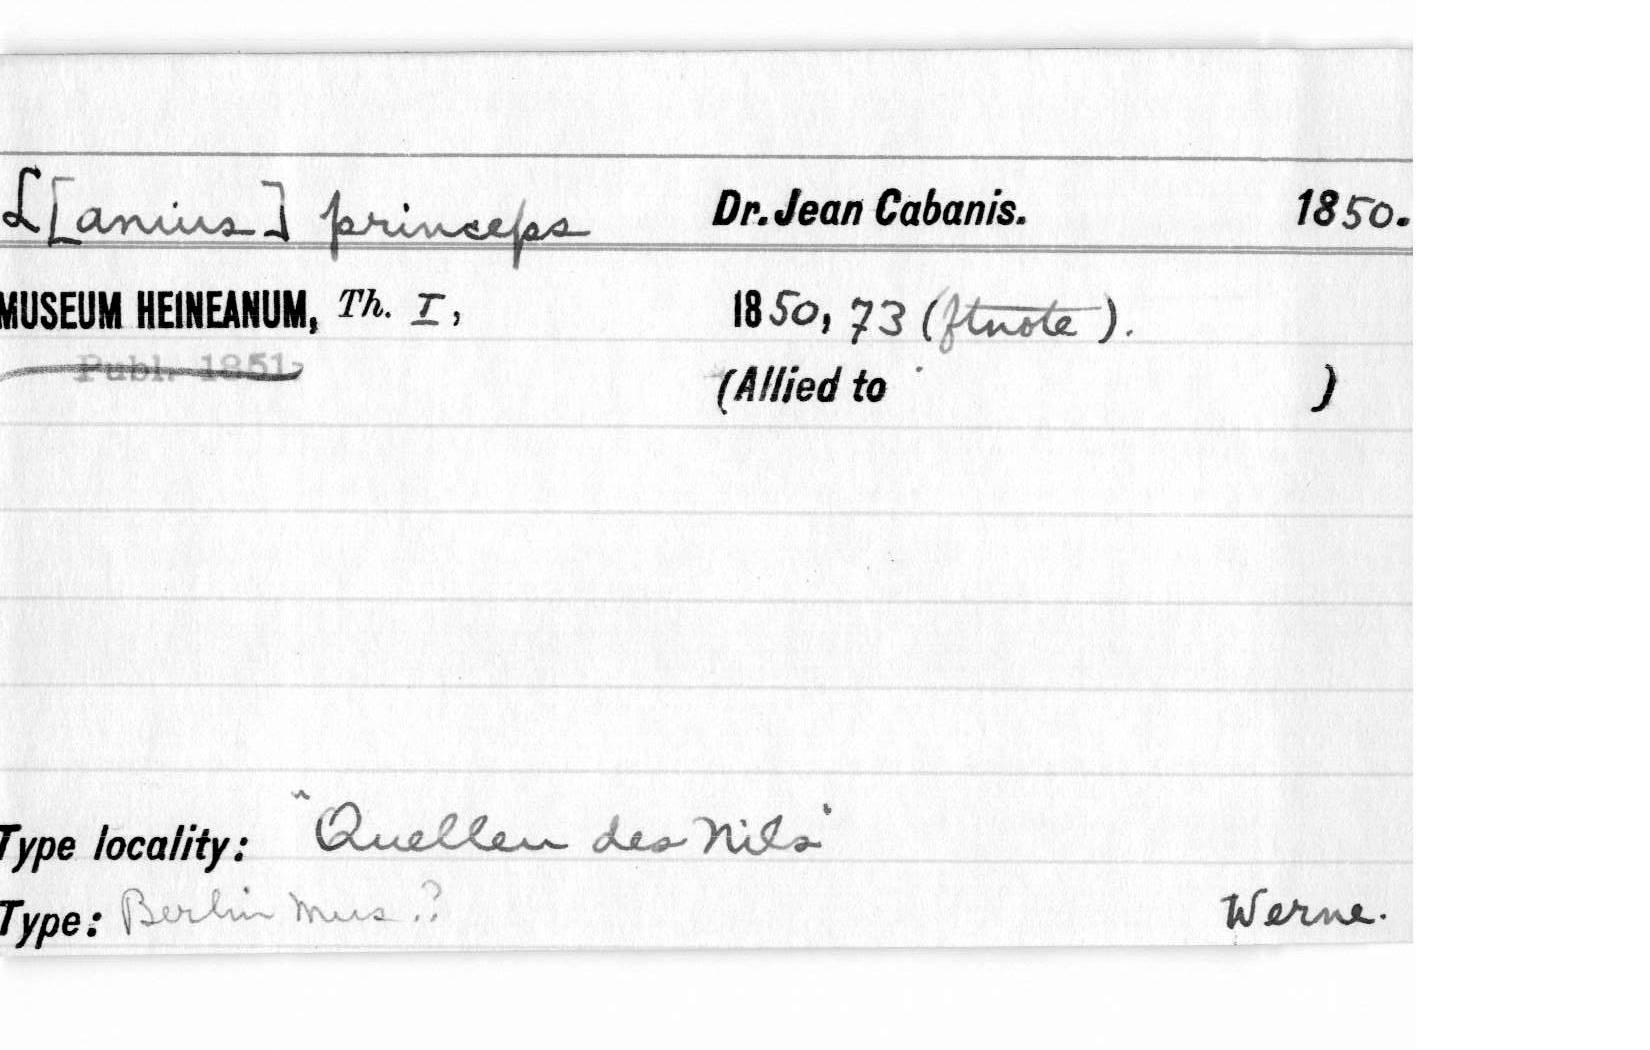 L[anius] princeps Dr. Jean Cabanis. 1850.
MUSEUM HEINEANUM, Th. I, 1850, 73 (ftnote).
Publ. 1851
(Allied to )
Type locality: "Quellen des Nils"
Type: Berlin Mus.? Werne.